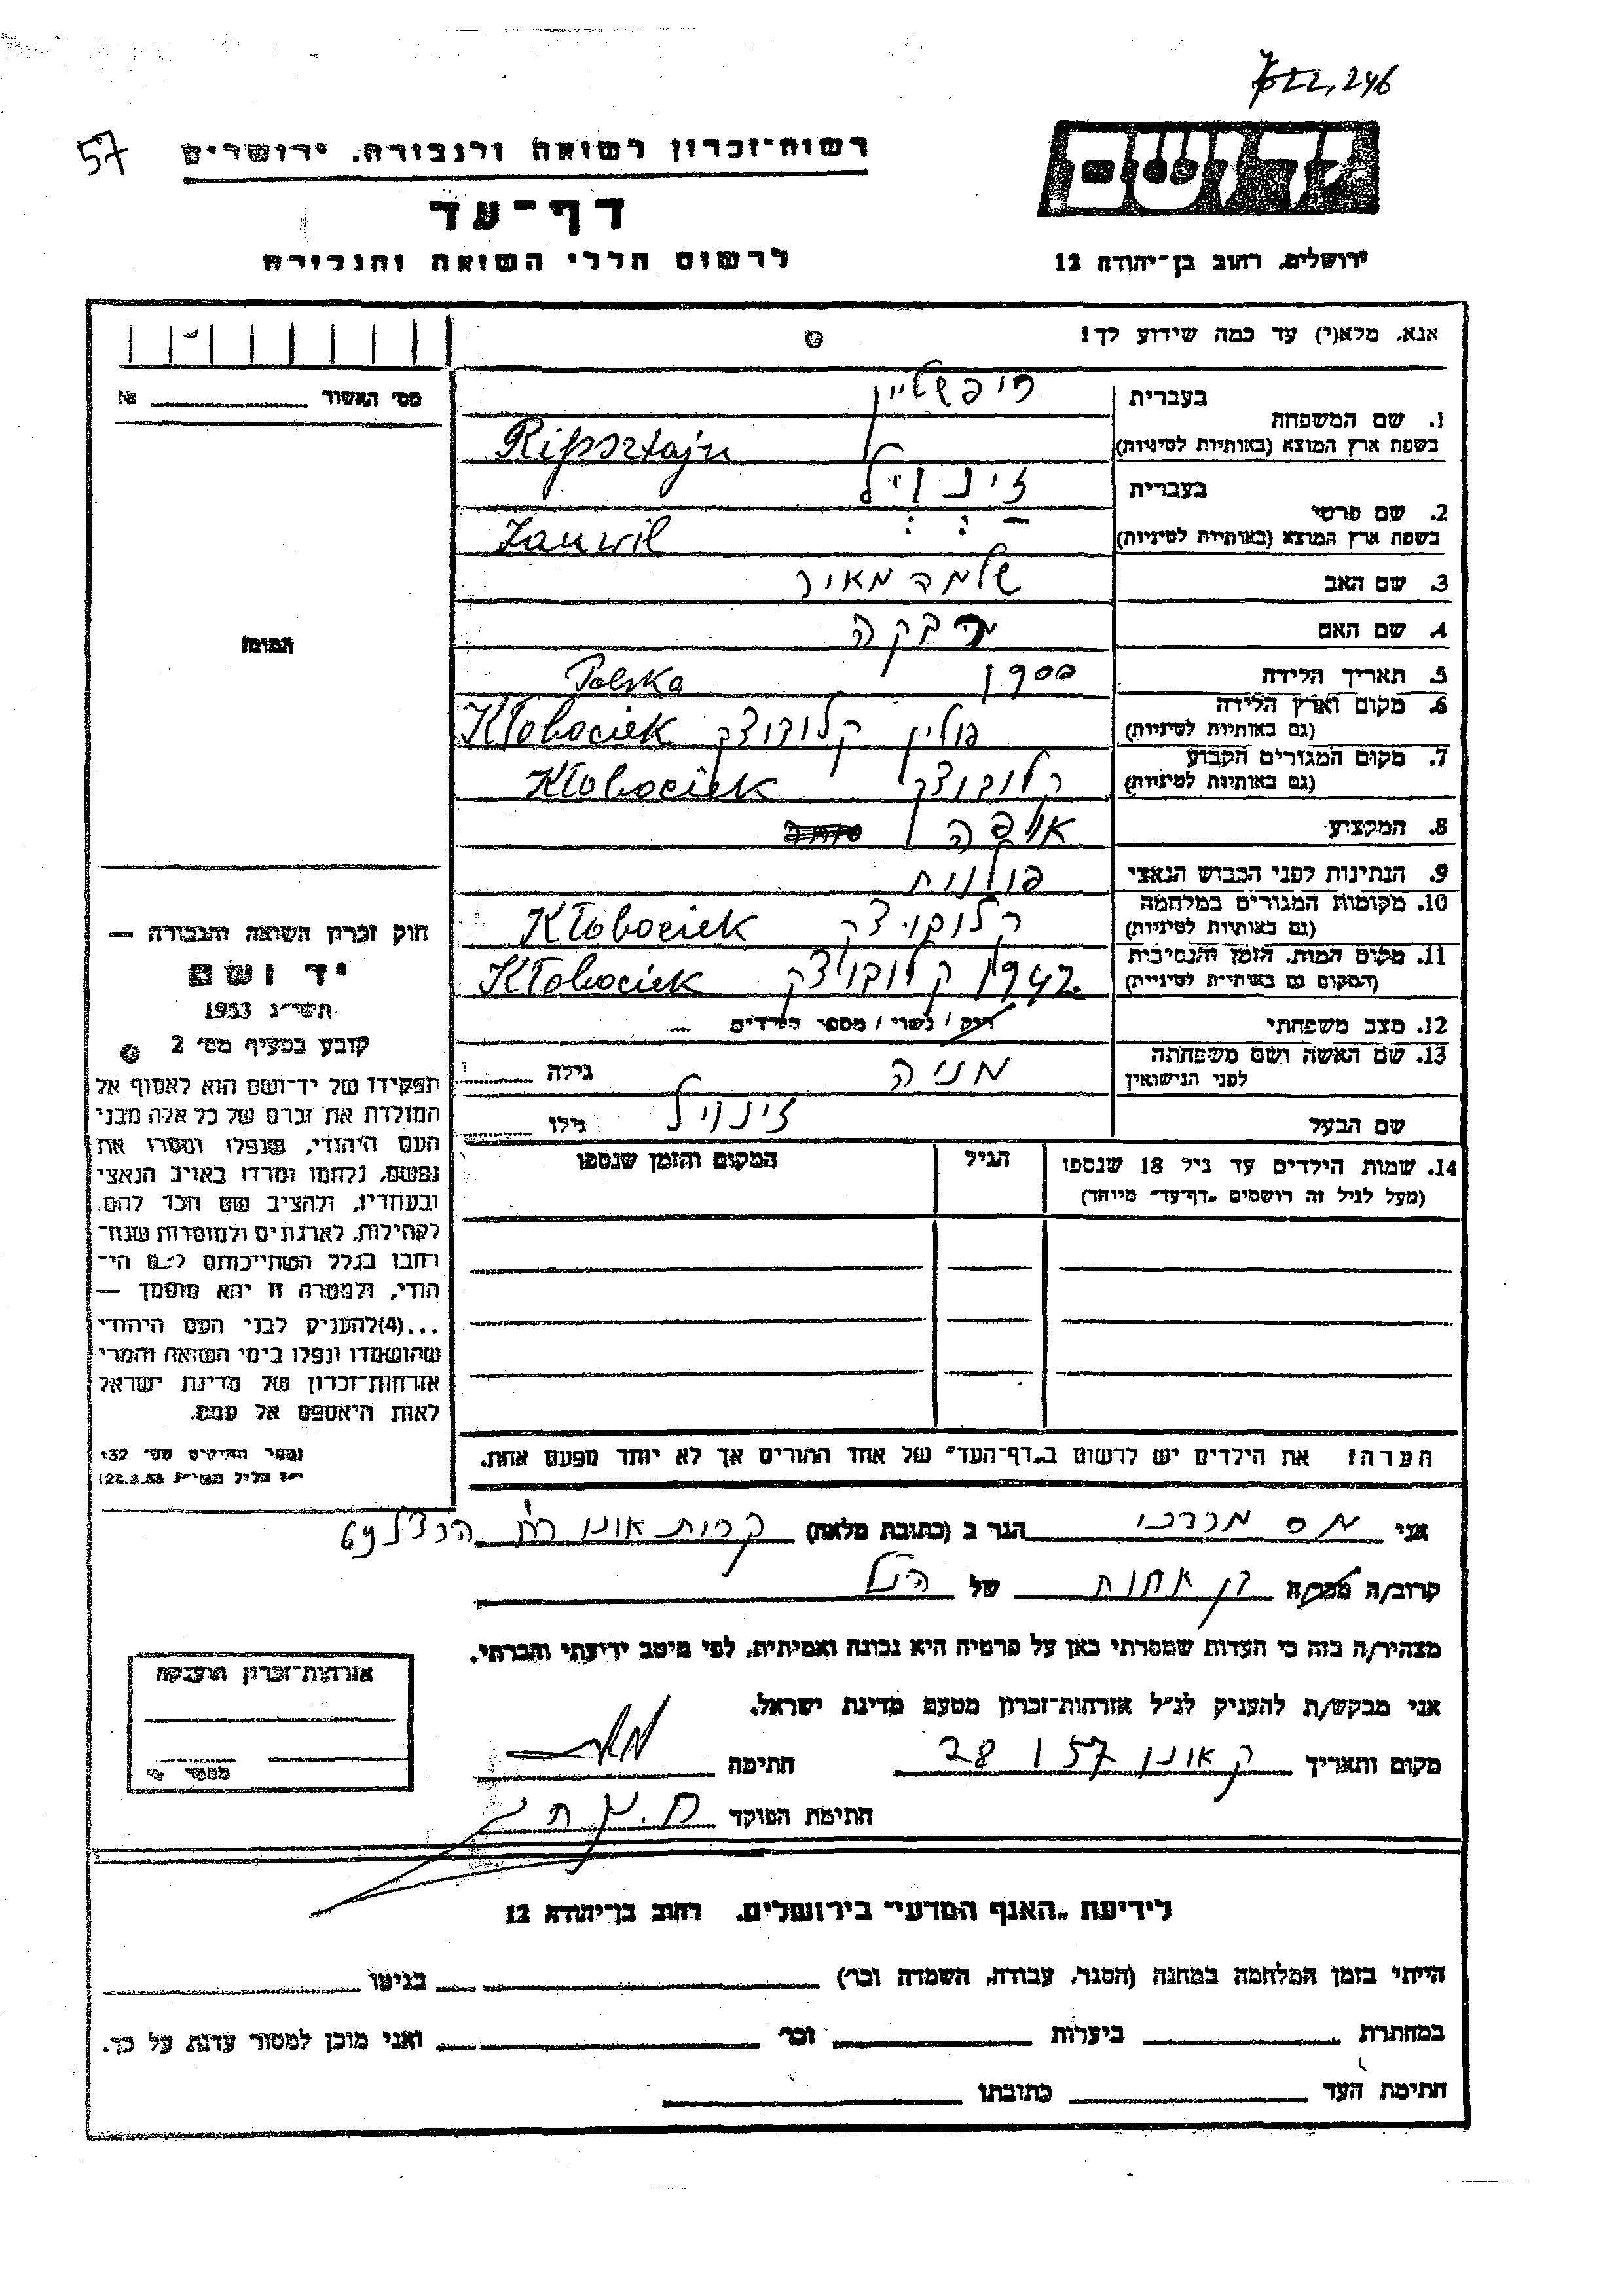 622,246
57
רשות־זכרון לשואה ולגבורה. ירושלים
דף־עד
לרשום חללי השואה והגבורה
ירושלים. רחוב בן־יהודה 12
אנא. מלא(י) עד כמה שידוע לך!
מס׳ האשור №
1. שם המשפחה
בעברית ריפשטיין
בשפת ארץ המוצא (באותיות לטיניות) Ripsztajn
2. שם פרטי
בעברית זינוויל
בשפת ארץ המוצא (באותיות לטיניות) Zanwil
3. שם האב שלמה מאיר
4. שם האם רבקה
5. תאריך הלידה 1900 Polska
6. מקום וארץ הלידה (גם באותיות לטיניות) פולין קלובוצק Kłobociek
7. מקום המגורים הקבוע (גם באותיות לטיניות) קלובוצק Kłobociek
8. המקצוע אופה
9. הנתינות לפני הכבוש הנאצי פולנית
10. מקומות המגורים במלחמה (גם באותיות לטיניות) קלובוצק Kłobociek
11. מקום המות. הזמן והנסיבות (המקום גם באותיות לטיניות) 1942 קלובוצק Kłobociek
12. מצב משפחתי רוק / נשוי / מספר הילדים
13. שם האשה ושם משפחתה לפני הנישואין מניה גילה
שם הבעל זינוויל גילו
14. שמות הילדים עד גיל 18 שנספו (מעל לגיל זה רושמים „דף־עד״ מיוחד)
הגיל
המקום והזמן שנספו
הערה! את הילדים יש לרשום ב„דף־העד״ של אחד ההורים אך לא יותר מפעם אחת.
תמונה
חוק זכרון השואה והגבורה —
יד ושם
תשי״ג 1953
קובע בסעיף מס׳ 2
תפקידו של יד־ושם הוא לאסוף אל
המולדת את זכרם של כל אלה מבני
העם היהודי, שנפלו ומסרו את
נפשם, נלחמו ומרדו באויב הנאצי
ובעוזריו, ולהציב שם וזכר להם.
לקהילות, לארגונים ולמוסדות שנח־
רחבו בגלל השתייכותם לעם הי־
הודי, ולמטרה זו יהא מוסמך —
...(4)להעניק לבני העם היהודי
שהושמדו ונפלו בימי השואה והמרי
אזרחות־זכרון של מדינת ישראל
לאות היאספם אל עמם.
(ספר החוקים מס׳ 132
28.8.53)
אני מס מרדכי הגר ב (כתובת מלאה) קרית אונו רח׳ הרצל 69
קרוב/ה מכר/ה בן אחות של הנ״ל
מצהיר/ה בזה כי העדות שמסרתי כאן על פרטיה היא נכונה ואמיתית, לפי מיטב ידיעתי והכרתי.
אני מבקש/ת להעניק לנ״ל אזרחות־זכרון מטעם מדינת ישראל.
מקום ותאריך ק אונו 28 1 57 חתימה
חתימת הפוקד
אזרחות־זכרון הוענקה
מספר
לידיעת „האגף המדעי״ בירושלים. רחוב בן־יהודה 12
הייתי בזמן המלחמה במחנה (הסגר, עבודה, השמדה וכו׳) בגיטו
במחתרת ביערות וכו׳ ואני מוכן למסור עדות על כך.
חתימת העד כתובתו